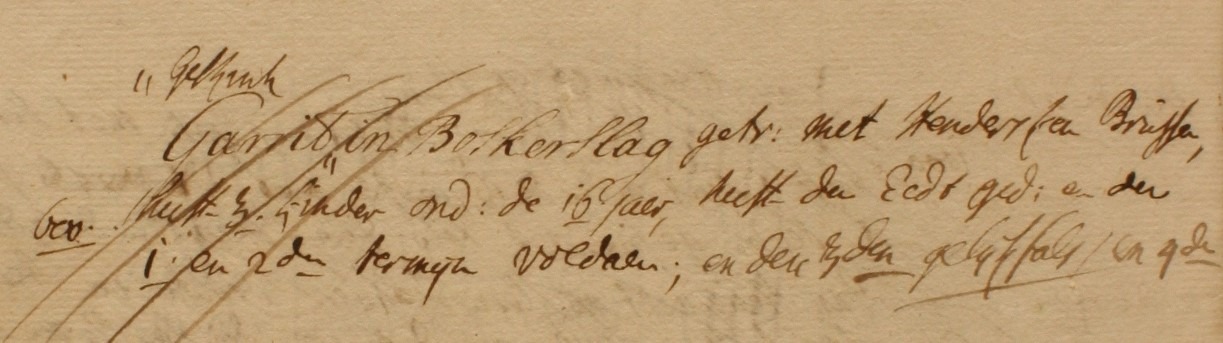 " Geschenk
Garrit in Boskerslag getr: met Henders ten Brüssen,
600. heeft 3. kinder ond: de 16 jaer, heeft den Eedt ged: en den
1. en 2den termyn voldaen; en den 3den gelyksals en 4den